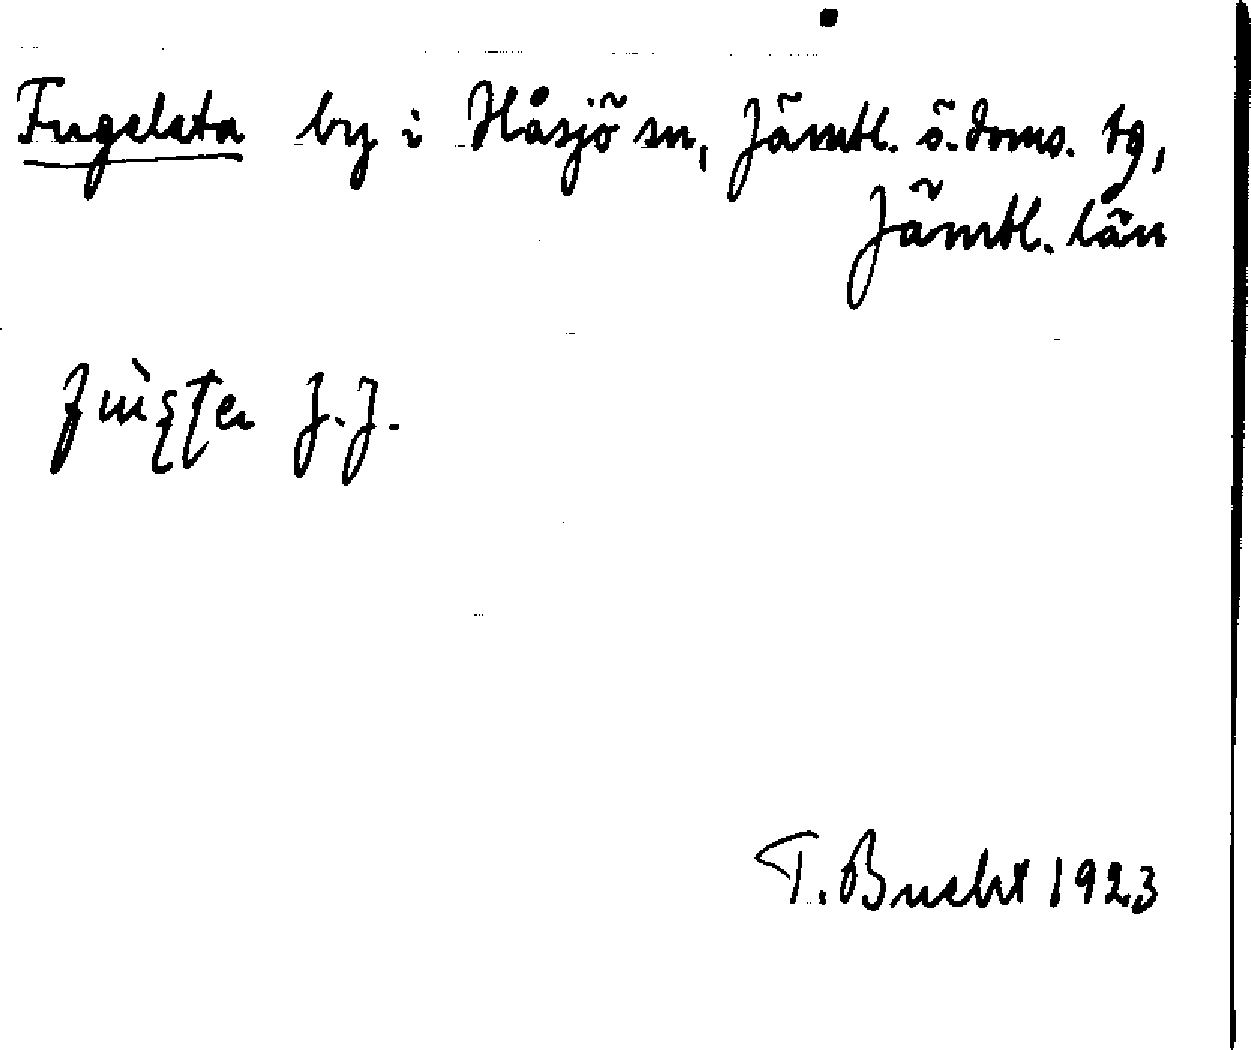 Fugelsta by i Håsjö sn, Jämtl. ö. doms. tg,
Jämtl. län
J. J.
T. Bucht 1923